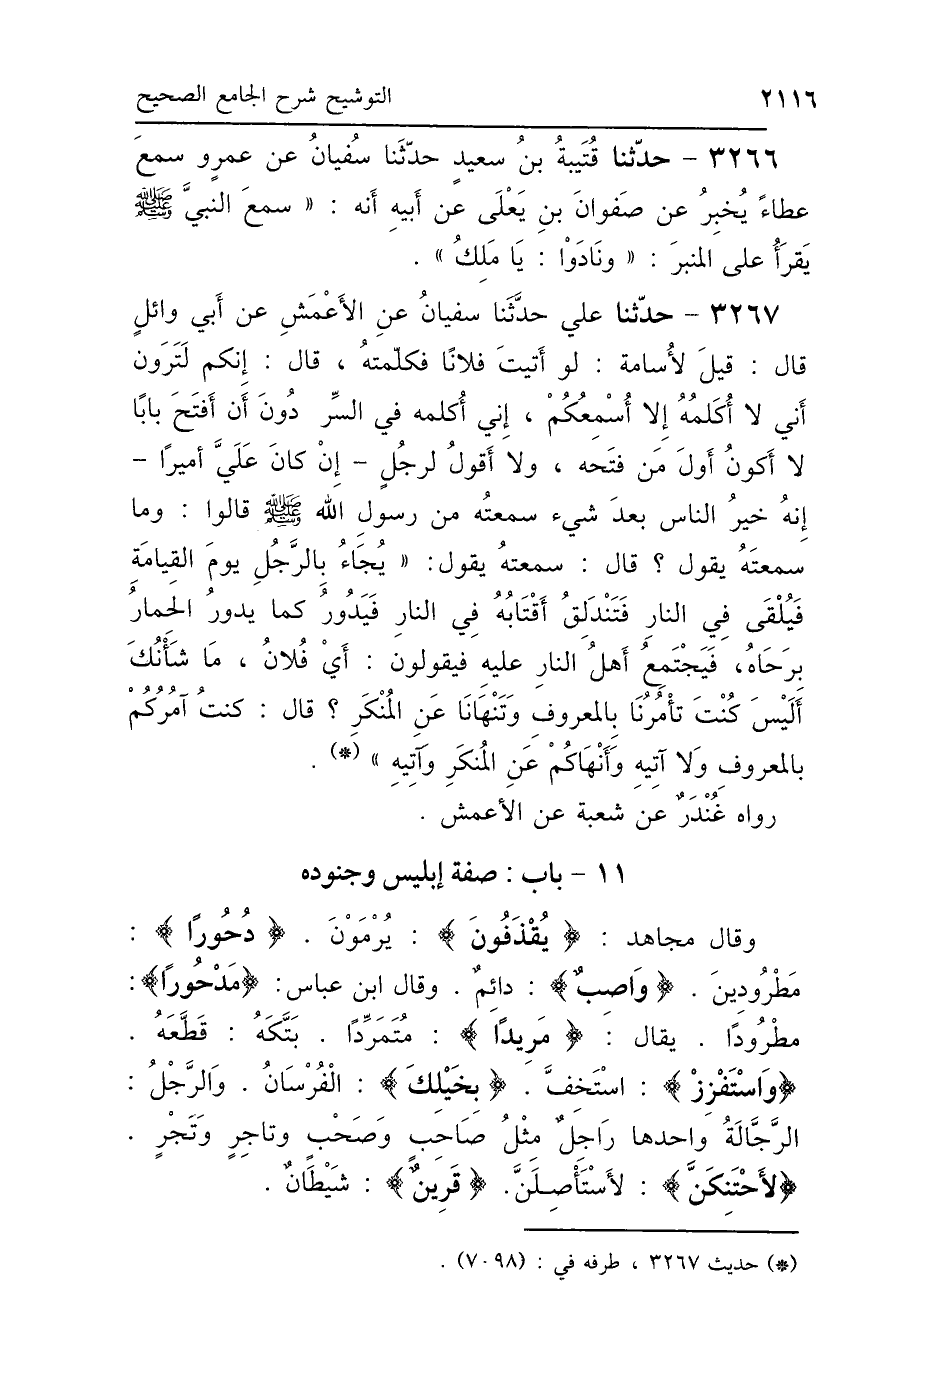 ٢١١٦ التوشيح شرح الجامع الصحيح
٣٢٦٦ – حدّثنا قُتَيبةُ بنُ سعيدٍ حدّثَنا سُفيانُ عن عمرو سمعَ
عطاءً يُخبِرُ عن صفوانَ بنِ يَعْلَى عن أبيهِ أنه : « سمعَ النبيَّ ﷺ
يَقرَأُ على المنبرَ : « ونَادَوْا : يَا مَلِكُ » .
٣٢٦٧ – حدّثنا علي حدَّثَنا سفيانُ عنِ الأَعْمَشِ عن أبي وائلٍ
قال : قيلَ لأسامة : لو أتيتَ فلانًا فكلّمتهُ ، قال : إنكم لَتَرَون
أني لا أُكَلمُهُ إلا أُسْمِعُكُمْ ، إني أُكلمه في السرِّ دُونَ أن أفتَحَ بابًا
لا أكونُ أولَ مَن فتَحه ، ولا أقولُ لرجُلٍ – إنْ كانَ عَلَيَّ أميرًا –
إنهُ خيرُ الناس بعدَ شيء سمعتُه من رسول الله ﷺ قالوا : وما
سمعتَهُ يقول ؟ قال : سمعتهُ يقول: « يُجَاءُ بِالرَّجُلِ يومَ القيامَةِ
فَيُلْقَى فِي النارِ فَتَنْدَلِقُ أقْتَابُهُ فِي النارِ فَيَدُورُ كما يدورُ الحمارُ
بِرَحَاهُ، فَيَجْتَمِعُ أهلُ النارِ عليهِ فيقولون : أيْ فُلانُ ، مَا شَأْنُكَ
أَلَيْسَ كُنْتَ تأْمُرُنَا بالمعروفِ وتَنْهَانَا عَنِ المُنْكَرِ ؟ قال : كنتُ آمرُكُمْ
بالمعروفِ وَلا آتيهِ وأَنْهَاكُمْ عَنِ المُنكَرِ وآتِيهِ » (*) .
رواه غُنْدَرٌ عن شعبة عن الأعمش .
١١ – باب : صفة إبليس وجنوده
وقال مجاهد : ﴿ يُقْذَفُونَ ﴾ : يُرْمَوْنَ . ﴿ دُحُورًا ﴾ :
مَطْرُودِينَ . ﴿ وَاصِبٌ ﴾ : دائمٌ . وقال ابن عباس: ﴿مَدْحُورًا﴾:
مطْرُودًا . يقال : ﴿ مَرِيدًا ﴾ : مُتَمَرِّدًا . بَتَّكَهُ : قَطَّعَهُ .
﴿وَاسْتَفْزِزْ ﴾ : اسْتَخِفَّ . ﴿ بِخَيْلِكَ ﴾ : الْفُرْسَانُ . وَالرَّجْلُ :
الرَّجَّالَةُ واحدها رَاجِلٌ مثْلُ صَاحِبٍ وَصَحْبٍ وتاجِرٍ وَتَجْرٍ .
﴿لأَحْتَنِكَنَّ ﴾ : لأَسْتَأْصِلَنَّ. ﴿ قَرِينٌ ﴾ : شَيْطَانٌ .
(*) حديث ٣٢٦٧ ، طرفه في : (٧٠٩٨) .